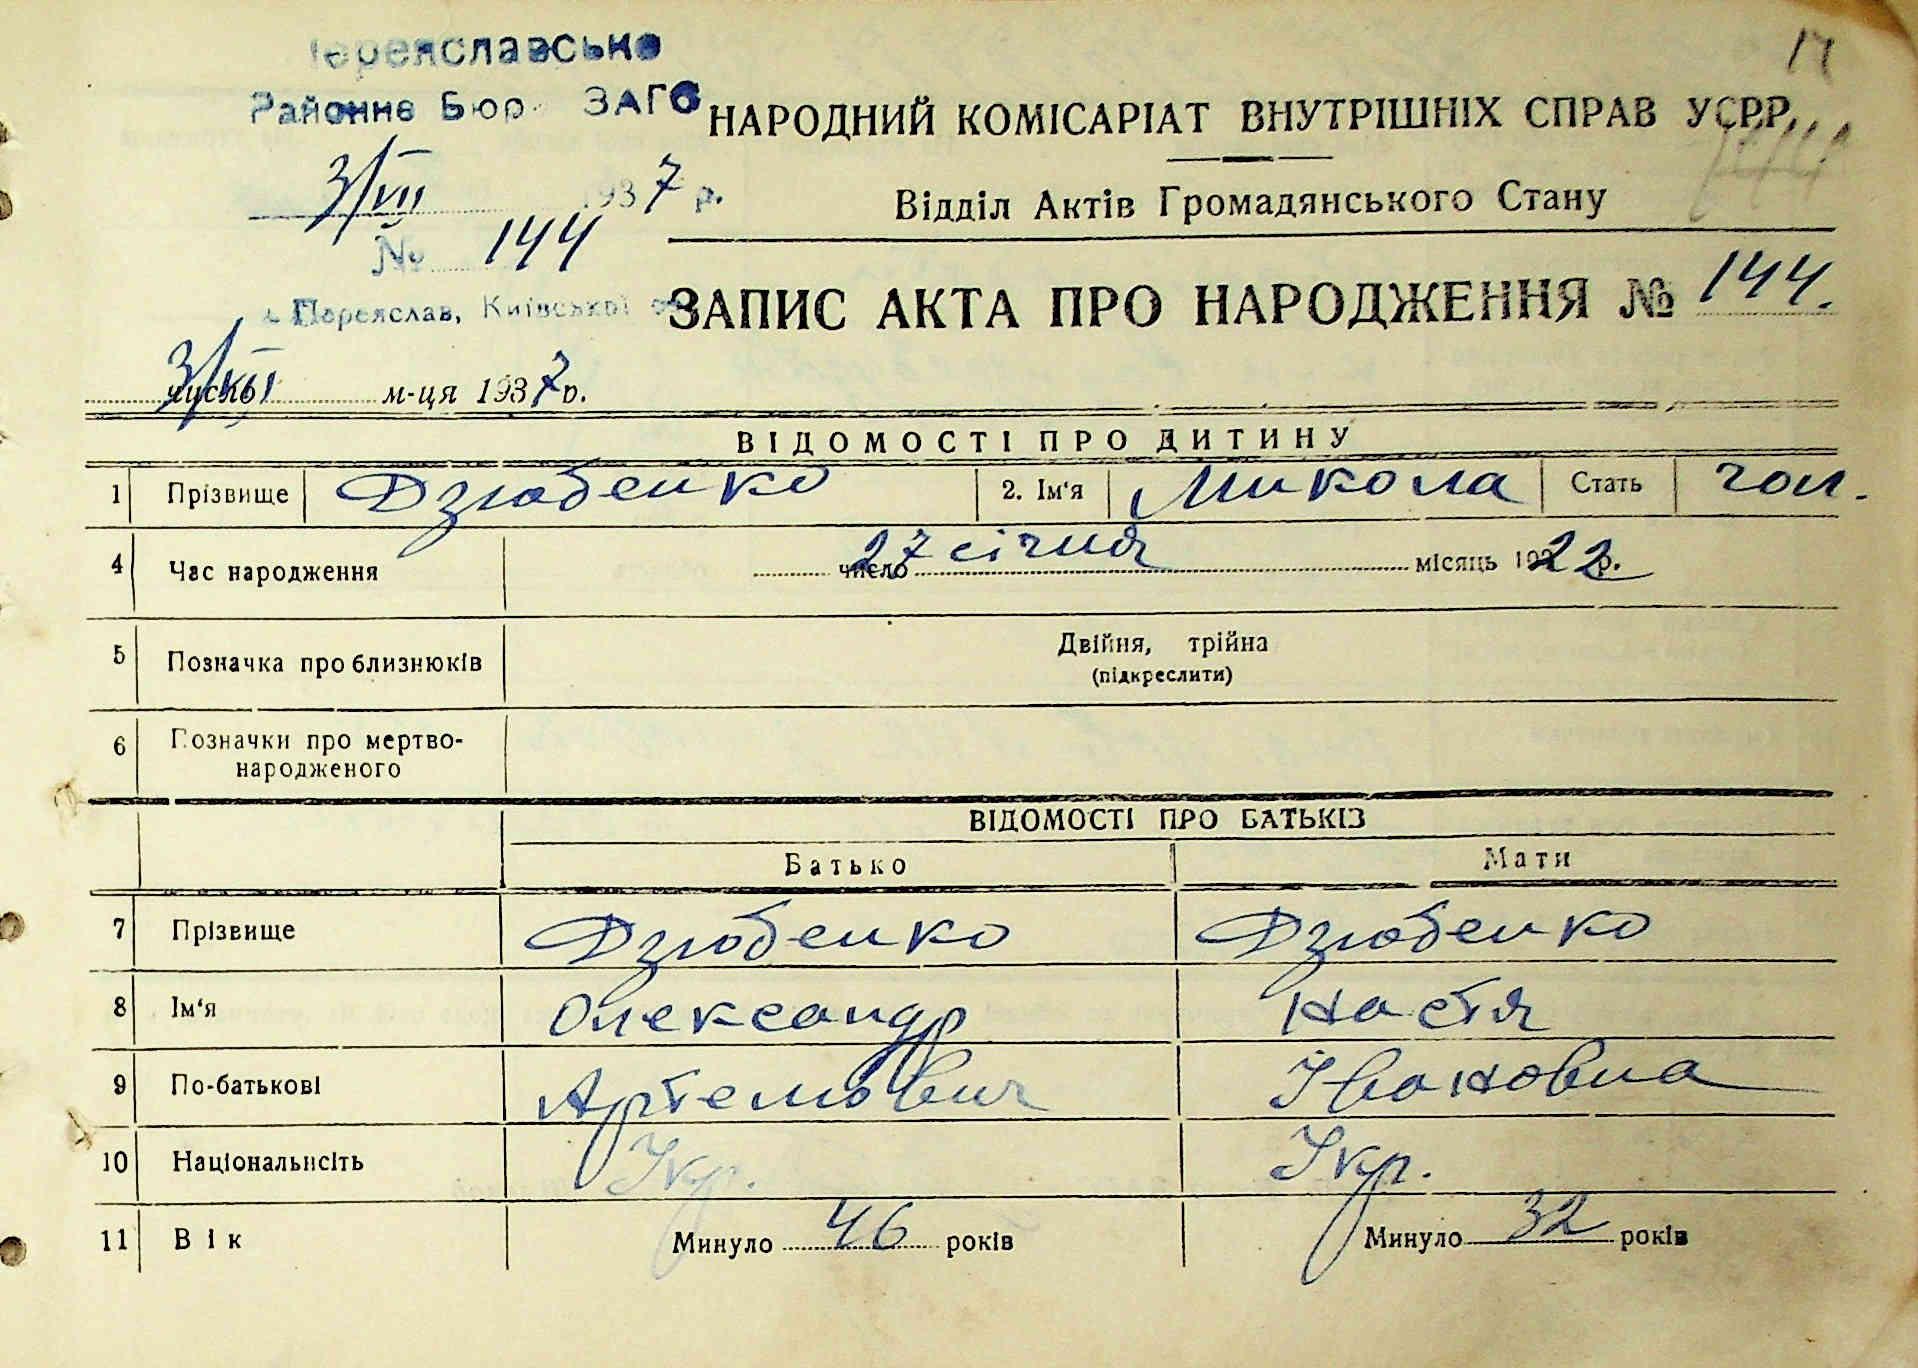 Переяславське
Районне Бюро ЗАГС
3/VII 1937 р.
№ 144
м. Переяслав, Київської
17
НАРОДНИЙ КОМІСАРІАТ ВНУТРІШНІХ СПРАВ УСРР
Відділ Актів Громадянського Стану
ЗАПИС АКТА ПРО НАРОДЖЕННЯ № 144.
3/VII число м-ця 1937 р.
ВІДОМОСТІ ПРО ДИТИНУ
1 Прізвище Дзюбенко 2. Ім'я Микола Стать чол.
4 Час народження 27 січня число місяць 1922 р.
5 Позначка про близнюків Двійня, трійна
(підкреслити)
6 Позначки про мертво-
народженого
ВІДОМОСТІ ПРО БАТЬКІВ
Батько Мати
7 Прізвище Дзюбенко Дзюбенко
8 Ім'я Олександр Настя
9 По-батькові Артемович Івановна
10 Національність Укр. Укр.
11 Вік Минуло 46 років Минуло 32 років